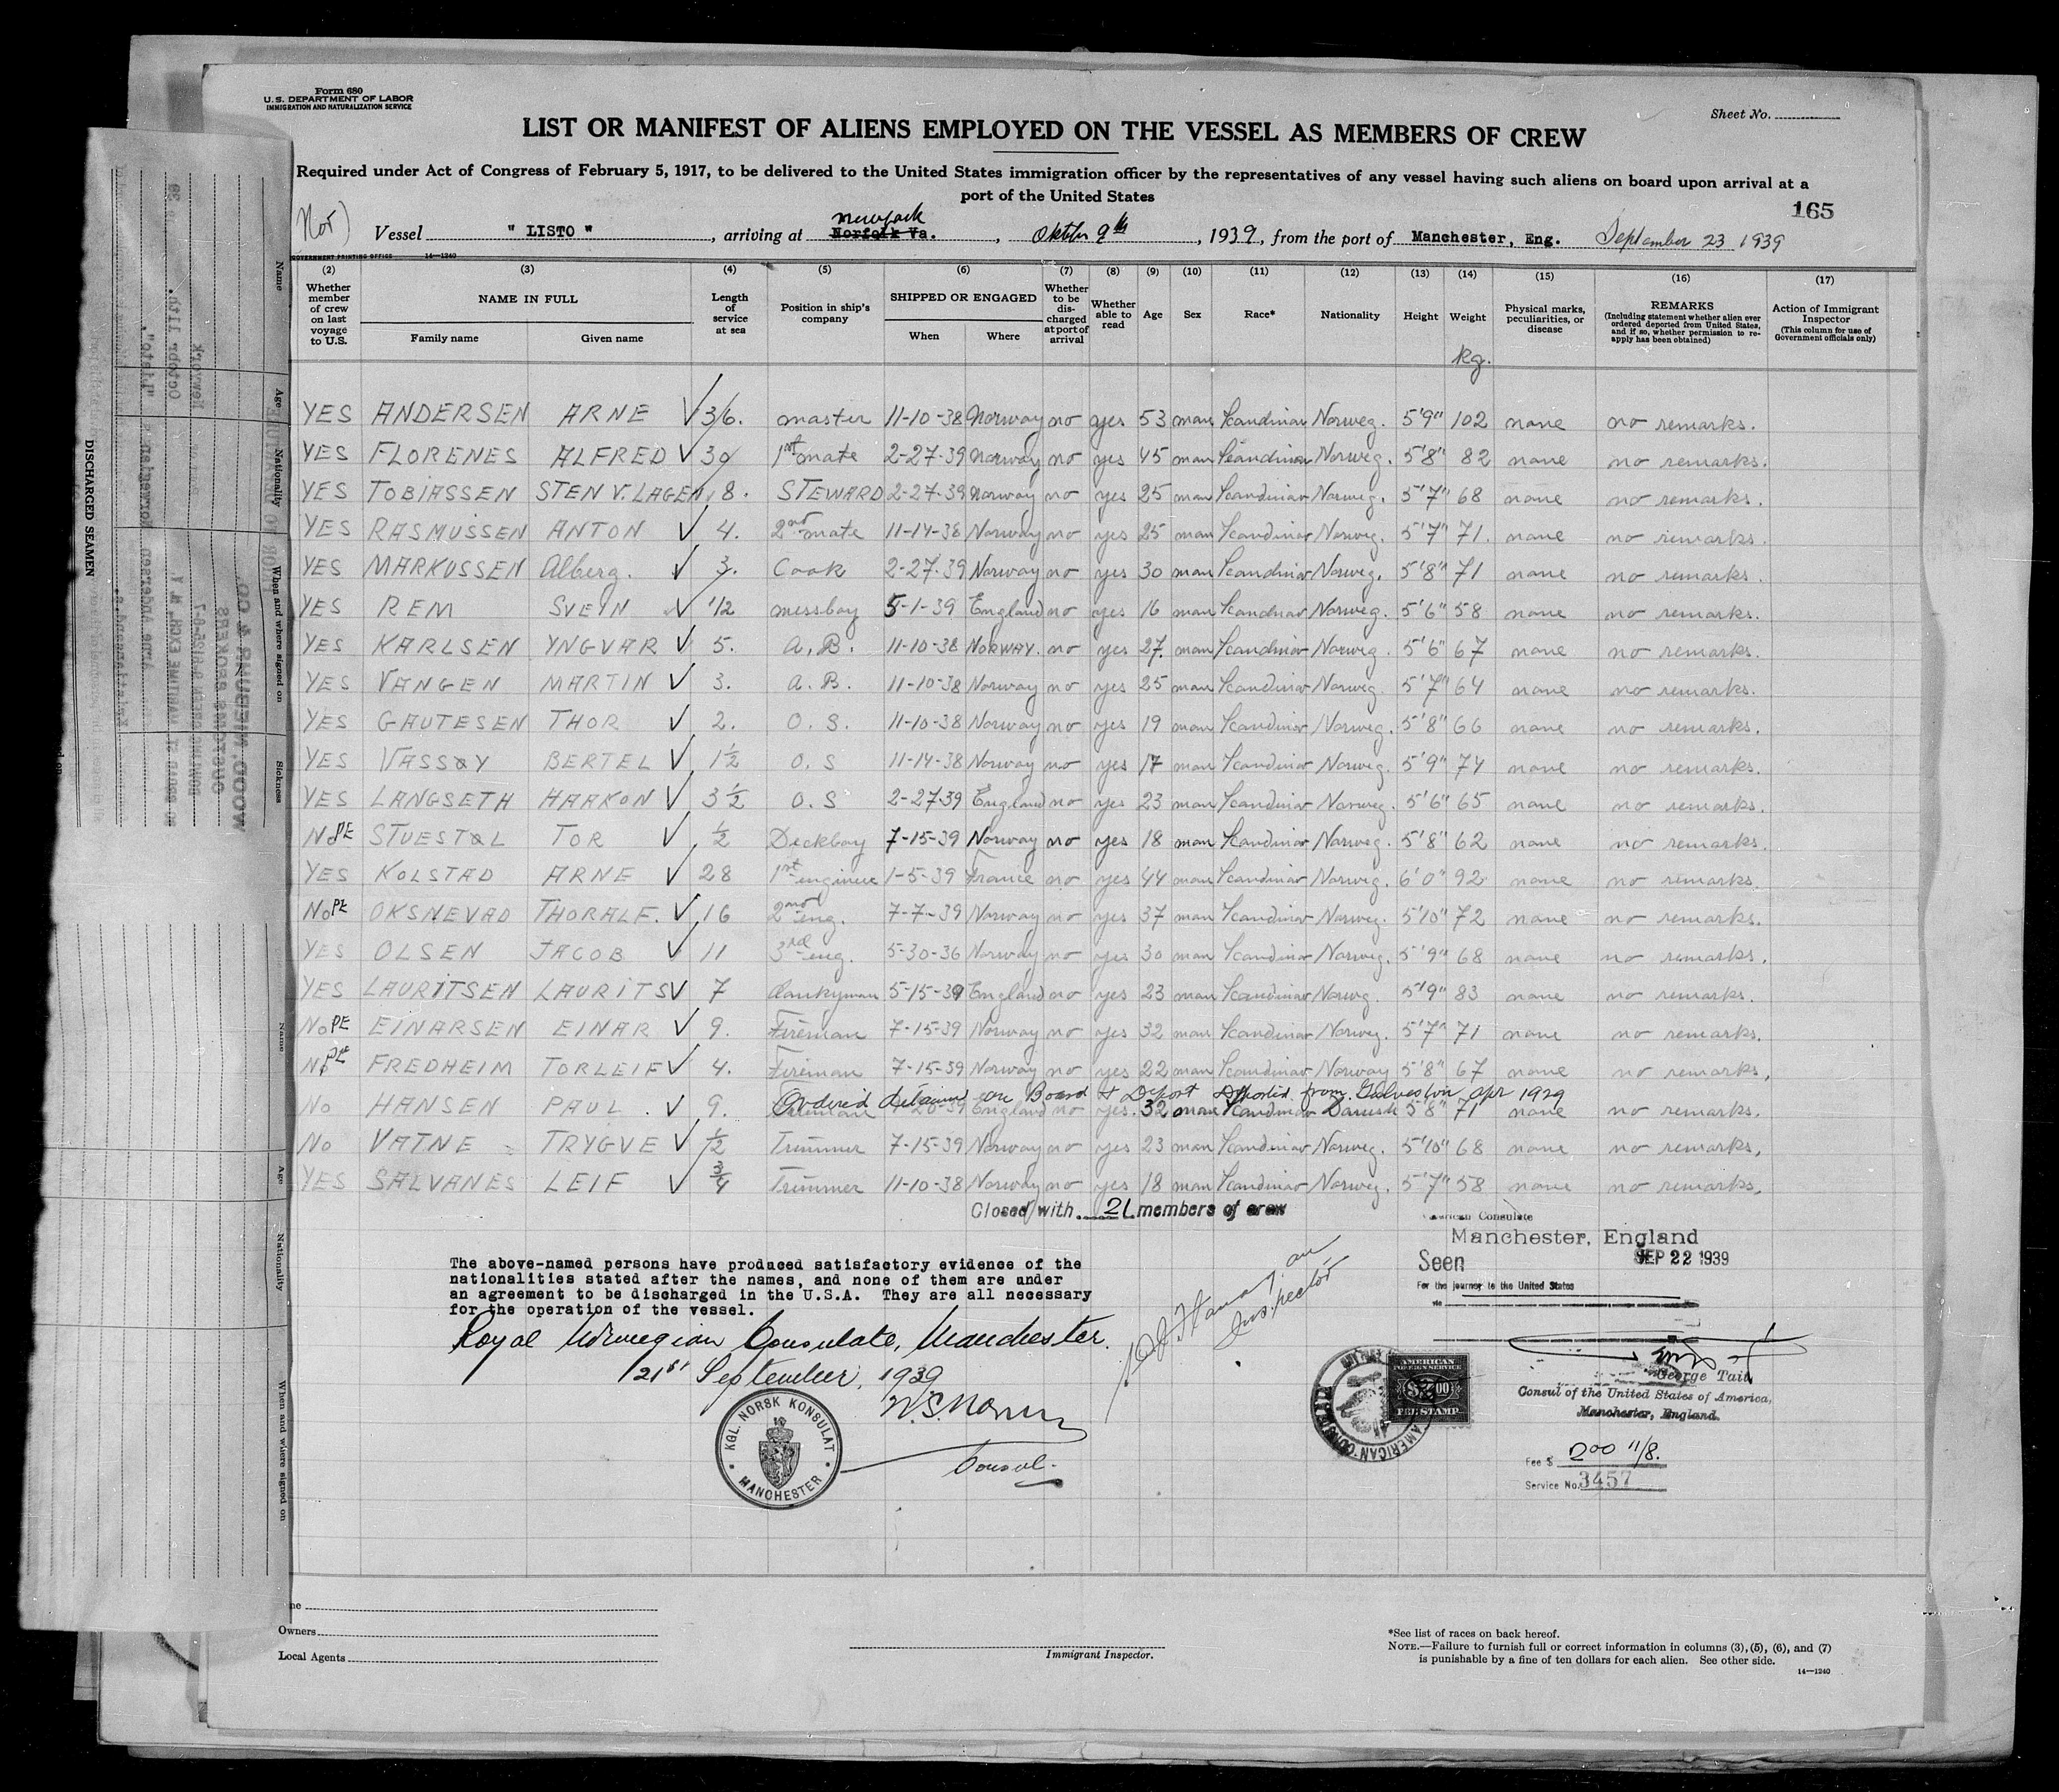 Form 680
U. S. DEPARTMENT OF LABOR
IMMIGRATION AND NATURALIZATION SERVICE
Sheet No.
LIST OR MANIFEST OF ALIENS EMPLOYED ON THE VESSEL AS MEMBERS OF CREW
Required under Act of Congress of February 5, 1917, to be delivered to the United States immigration officer by the representatives of any vessel having such aliens on board upon arrival at a
port of the United States
165
Nor)
Newyork
Vessel " LISTO " , arriving at Norfolk Va. , Oktober 9th , 1939, from the port of Manchester, Eng. September 23 1939
GOVERNMENT PRINTING OFFICE 14—1240
(2) (3) (4) (5) (6) (7) (8) (9) (10) (11) (12) (13) (14) (15) (16) (17)
Whether member of crew on last voyage to U.S.
NAME IN FULL
Family name Given name
Length of service at sea
Position in ship's company
SHIPPED OR ENGAGED
When Where
Whether to be discharged at port of arrival
Whether able to read
Age
Sex
Race*
Nationality
Height
Weight
Physical marks, peculiarities, or disease
REMARKS
(Including statement whether alien ever ordered deported from United States, and if so, whether permission to reapply has been obtained)
Action of Immigrant Inspector
(This column for use of Government officials only)
Kg.
YES ANDERSEN ARNE √ 36. master 11-10-38 Norway no yes 53 man Scandinav Norweg. 5'9" 102 none no remarks.
YES FLORENES ALFRED √ 30 1st mate 2-27-39 Norway no yes 45 man Scandinav Norweg. 5'8" 82 none no remarks.
YES TOBIASSEN STEN V. LAGEN 8. STEWARD 2-27-39 Norway no yes 25 man Scandinav Norweg. 5'7" 68 none no remarks.
YES RASMUSSEN ANTON √ 4. 2nd mate 11-14-38 Norway no yes 25 man Scandinav Norweg. 5'7" 71. none no remarks.
YES MARKUSSEN Alberg. √ 3. Cook 2-27-39 Norway no yes 30 man Scandinav Norweg. 5'8" 71 none no remarks.
YES REM SVEIN √ 1/2 messboy 5-1-39 England no yes 16 man Scandinav Norweg. 5'6" 58 none no remarks.
YES KARLSEN YNGVAR √ 5. A.B. 11-10-38 NORWAY. no yes 27. man Scandinav Norweg. 5'6" 67 none no remarks.
YES VANGEN MARTIN √ 3. A.B. 11-10-38 Norway no yes 25 man Scandinav Norweg. 5'7" 64 none no remarks.
YES GAUTESEN THOR √ 2. O.S. 11-10-38 Norway no yes 19 man Scandinav Norweg. 5'8" 66 none no remarks.
YES VASSØY BERTEL √ 1½ O.S 11-14-38 Norway no yes 17 man Scandinav Norweg. 5'9" 74 none no remarks.
YES LANGSETH HAAKON √ 3½ O.S 2-27-39 England no yes 23 man Scandinav Norweg. 5'6" 65 none no remarks.
No PE STUESTØL TOR √ ½ Deckboy 7-15-39 Norway no yes 18 man Scandinav Norweg. 5'8" 62 none no remarks.
YES KOLSTAD ARNE √ 28 1st engineer 1-5-39 France no yes 44 man Scandinav Norweg. 6'0" 92 none no remarks.
No PE OKSNEVAD THORALF. √ 16 2nd eng. 7-7-39 Norway no yes 37 man Scandinav Norweg. 5'10" 72 none no remarks.
YES OLSEN JACOB √ 11 3rd eng. 5-30-36 Norway no yes 30 man Scandinav Norweg. 5'9" 68 none no remarks.
YES LAURITSEN LAURITS √ 7 donkyman 5-15-39 England no yes 23 man Scandinav Norwg. 5'9" 83 none no remarks.
No PE EINARSEN EINAR √ 9. Fireman 7-15-39 Norway no yes 32 man Scandinav Norweg. 5'7" 71 none no remarks.
No PE FREDHEIM TORLEIF √ 4. Fireman 7-15-39 Norway no yes 22 man Scandinav Norway 5'8" 67 none no remarks,
Ordered detained on Board & Deport Deported from Galveston Apr 1929
No HANSEN PAUL. √ 9. Fireman England no yes. 32 man Scandinav Danish 5'8" 71 none no remarks.
No VATNE TRYGVE √ ½ Trimmer 7-15-39 Norway no yes 23 man Scandinav Norweg. 5'10" 68 none no remarks,
YES SALVANES LEIF √ ¾ Trimmer 11-10-38 Norway no yes 18 man Scandinav Norweg. 5'7" 58 none no remarks,
Closed with 21 members of crew
American Consulate
Manchester, England
Seen SEP 22 1939
For the journey to the United States
via
The above-named persons have produced satisfactory evidence of the
nationalities stated after the names, and none of them are under
an agreement to be discharged in the U.S.A. They are all necessary
for the operation of the vessel.
Royal Norwegian Consulate, Manchester.
21st September, 1939
Consul.
KGL. NORSK KONSULAT
MANCHESTER
Inspector
AMERICAN
FOREIGN SERVICE
$2.00
FEE STAMP
George Tait
Consul of the United States of America,
Manchester, England.
Fee $ 200 11/8.
Service No. 3457
ne
Owners
Local Agents
Immigrant Inspector.
*See list of races on back hereof.
NOTE.—Failure to furnish full or correct information in columns (3), (5), (6), and (7)
is punishable by a fine of ten dollars for each alien. See other side.
14—1240
DISCHARGED SEAMEN
Name
Age
Nationality
When and where signed on
Sickness
Name
Age
Nationality
When and where signed on
WOOD, NIEBUHR & CO.
CUSTOMS BROKERS
"Listo".
Octobr 11th. 39
Newyork
Norwegian
Arne Andersen